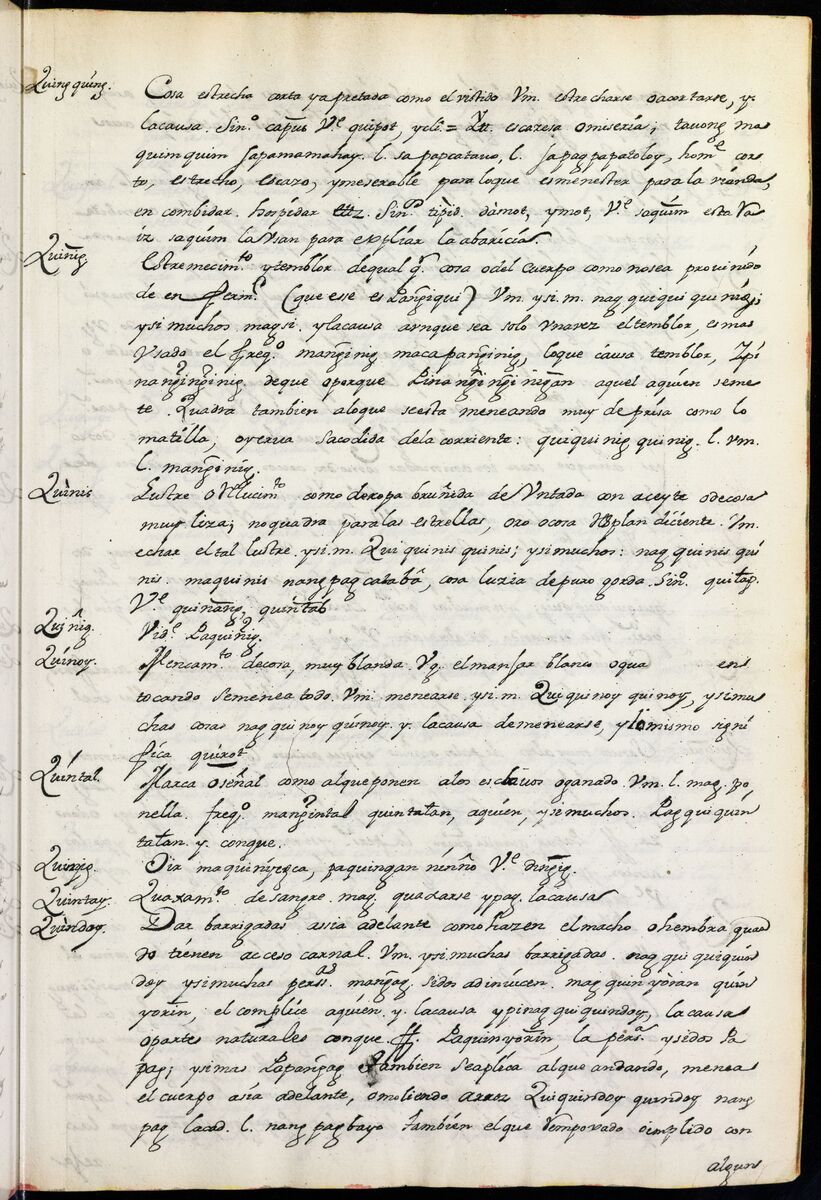 Quing quíng. Cosa estrecha corta y apretada como el vistido Vm. estrecharse o acortarse, y
la causa. Sin.º capus V.e quipot, ycli.= Itt. escaresa o miseria; tavong ma
quim quim sapamamahay. l. sa papcatavo, l. sa pag papatoloy, hom.e cor
to, estrecho, escazo, y meserable para loque es menester para la vianda,
en combidar. hospidar ettz. Sin.º tipid. dàmot, ymot, V.e saquĩm esta Ra
iz saquim la Vsan para expliar la abaricia.
Quiñig Estremecim.to y temblor de qual q.r cosa o del Cuerpo como no sea provinido
de en ferm.d (que esse es Pañgiqui) Vm. y si. m. nag quiqui quiñig;
y si muchos magsi. y la causa aunque sea solo Vna vez el temblor, es mas
Vsado el freq.º mañginig maca pañginig, loque causa temblor, Ypi
nañginginig de que o porque Pinañginginigan aquel aquien seme
te. Quadra tambien aloque se esta meneando muy de prisa como lo
matilla; o yerva sacodida dela corriente: quiquinig quinig. l. Vm.
l. mañginig.
Quinis Lustre o Relucim.to como de ropa bruñida de Vntada con aceyte o de cosa
muy liza; no quadra para las estrellas, oro o cosa Resplandiciente. Vm.
echar el tal lustre. y si. m. Qui quinis quinis; y si muchos: nag quinis qui
nis. maquinis nang pag cataba, cosa luzia de puro gorda. Sin.º quitap.
V.e quinang, quintab
Quiñig. Vid.e Paquiñig.
Quinoy. Mencam.to de cosa, muy blanda. V.g. el manjar blanco o gua ens
tocando se menea todo. Vm. menearse, y si. m. Qui quinoy quinoy, y si mu
chas cosas nag quinoy quinoy. y. la causa de menearse, y lo mismo signi
fica quirot.
Quintal. Marca o señal como al que ponen alos esclavos o ganado. Vm. l. mag. po
nella. freq.º mañgintal quintalan, aquien, y si muchos. Pag qui quin
talan. y. conque.
Oir
Quintay. Quaxam.to de sangre. mag. quaxarse y pag. la causa
Quindoy. Dar barrigadas assia adelante como hazen el macho o hembra quan
do tienen acceso carnal. Vm. y si muchas barrigadas. nag qui quiquin
doy y si muchas pers.s mañgag. si dos adinvicen. mag quinyoran quin
yorin, el complice aquien. y. la causa ypinag qui quindoy, la causa
o partes naturales conque. ff. Paquinyorin, la pers.a y si dos Pa
pag; y si mas Papañgag tambien se aplica al que andando, menea
el cuerpo asia adelante, o moliendo arroz Quiquindoy quindoy nang
pag lacad. l. nang pag bayo tambien el que temporado cimplido con
algun